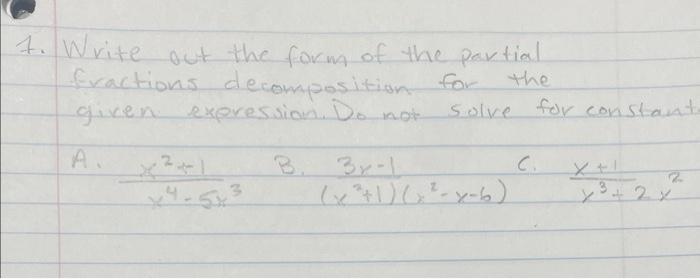 1. Write out the form of the partial
fractions decomposition for the
given expression. Do not solve for constant
A. x²+1 / x⁴-5x³ B. 3x-1 / (x²+1)(x²-x-6) C. x+1 / x³+2x²